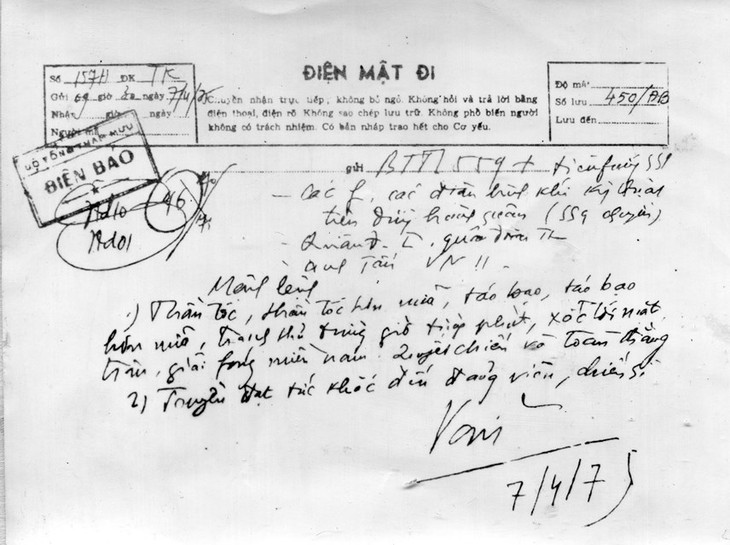 ĐIỆN MẬT ĐI
Số 157/1 ĐK TK
Gửi giờ ngày 7/4/75
Nhận giờ ngày
Người mã
Chuyển nhận trực tiếp, không bỏ ngỏ. Không hỏi và trả lời bằng
điện thoại, điện rõ. Không sao chép lưu trữ. Không phổ biến người
không có trách nhiệm. Có bản nháp trao hết cho Cơ yếu.
Độ mật
Số lưu 450/ĐB
Lưu đến
BỘ TỔNG THAM MƯU
ĐIỆN BÁO
gửi BTTL 559 +
- Các f, các đơn
trên đường hành quân (559 chuyển)
- Quân đ. I, quân đoàn
Mệnh lệnh
1) Thần tốc, thần tốc hơn nữa, táo bạo, táo bạo
hơn nữa, tranh thủ từng giờ từng phút, xốc tới mặt
trận, giải fong miền nam. Quyết chiến và toàn thắng
2) Truyền đạt tức khắc đến đảng viên, chiến sĩ
Văn
7/4/75